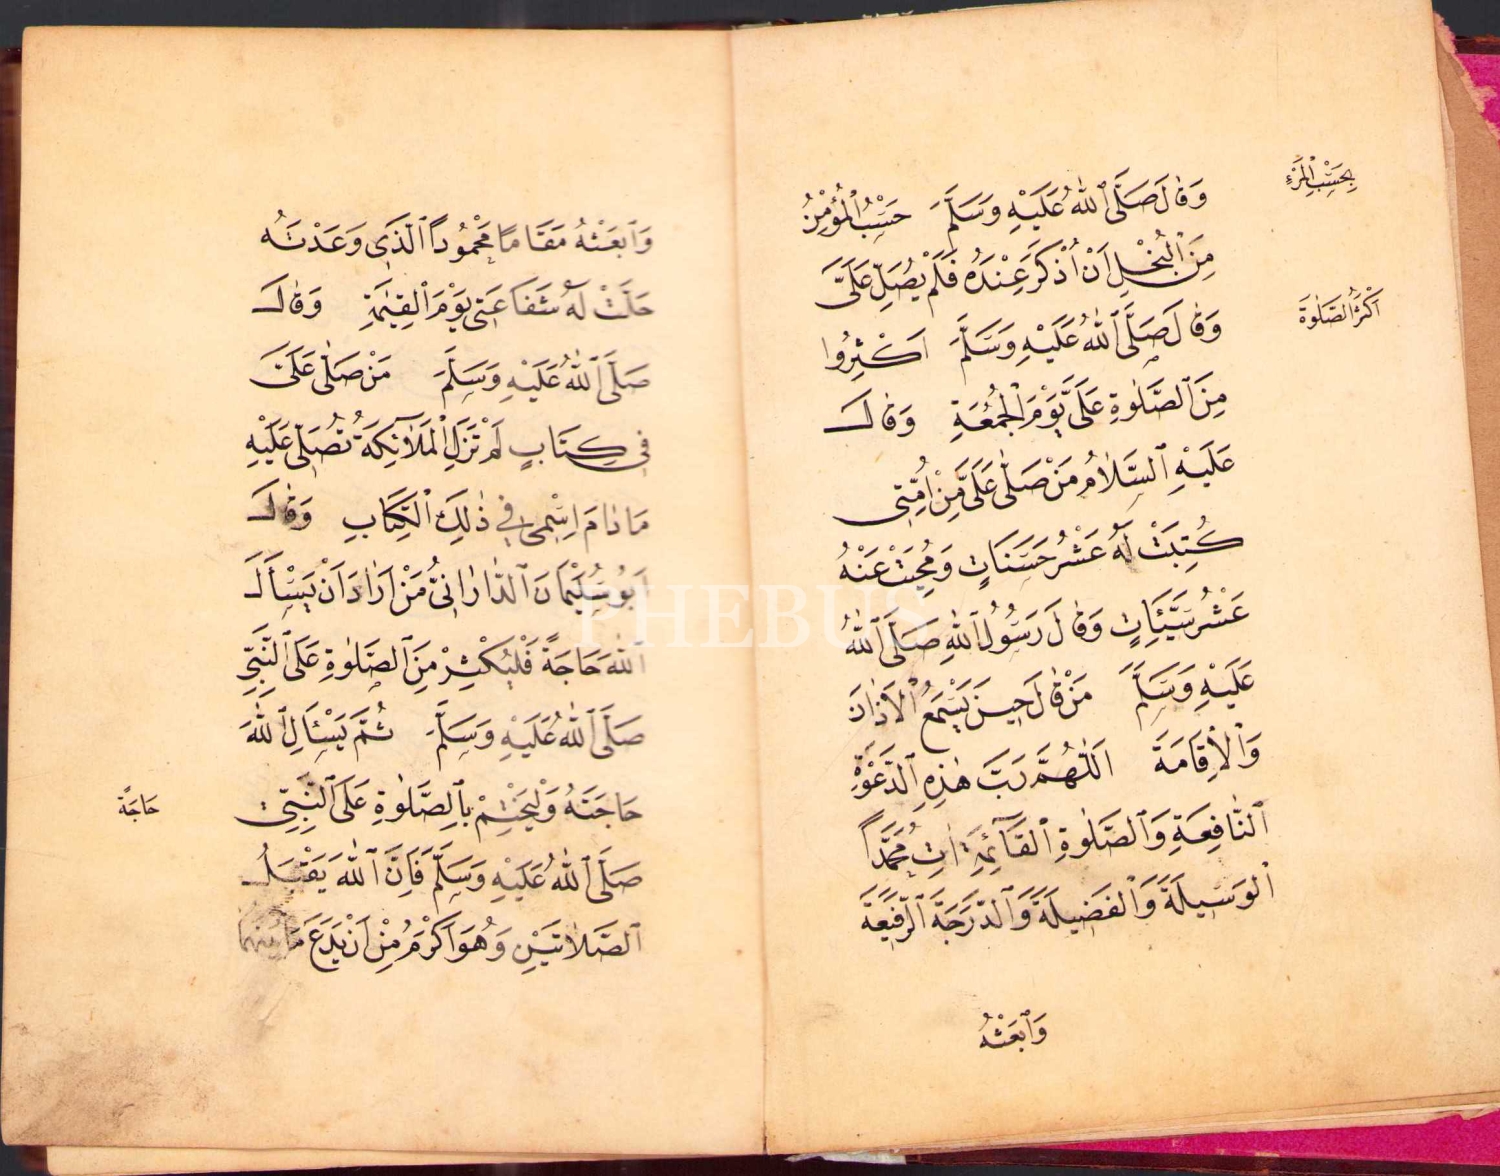 وَقَالَ صَلَّى ٱللّٰهُ عَلَيْهِ وَسَلَّمَ حَسْبُ الْمُؤْمِنُ
بِحَسْبِ الْمَرْءِ
مِنَ الْبُخْلِ اَنْ اُذْكَرَ عِنْدَهُ فَلَمْ يُصَلِّ عَلَىَّ
وَقَالَ صَلَّى ٱللّٰهُ عَلَيْهِ وَسَلَّمَ اَكْثِرُوا
اَكْثَرُ الصَّلٰوةَ
مِنَ ٱلصَّلٰوةِ عَلَىَّ يَوْمَ الْجُمُعَةِ وَقَالَ
عَلَيْهِ ٱلسَّلَامُ مَنْ صَلَّى عَلَىَّ مِنْ اُمَّتِى
كُتِبَتْ لَهُ عَشْرُ حَسَنَاتٍ وَمُحِيَتْ عَنْهُ
عَشْرُ سَيِّئَاتٍ وَقَالَ رَسُولُ ٱللّٰهِ صَلَّى ٱللّٰهُ
عَلَيْهِ وَسَلَّمَ مَنْ قَالَ حِينَ يَسْمَعُ الْاَذَانَ
وَالْاِقَامَةَ اَللّٰهُمَّ رَبَّ هٰذِهِ ٱلدَّعْوَةِ
ٱلنَّافِعَةِ وَٱلصَّلٰوةِ ٱلْقَآئِمَةِ اٰتِ مُحَمَّدًا
ٱلْوَسِيلَةَ وَٱلْفَضِيلَةَ وَٱلدَّرَجَةَ ٱلرَّفِيعَةَ
وَٱبْعَثْهُ
وَٱبْعَثْهُ مَقَامًا مَحْمُودًا ٱلَّذِى وَعَدْتَهُ
حَلَّتْ لَهُ شَفَاعَتِى يَوْمَ ٱلْقِيٰمَةِ وَقَالَ
صَلَّى ٱللّٰهُ عَلَيْهِ وَسَلَّمَ مَنْ صَلَّى عَلَىَّ
فِى كِتَابٍ لَمْ تَزَلِ الْمَلَآئِكَةُ تُصَلِّى عَلَيْهِ
مَا دَامَ اِسْمِى فِى ذٰلِكَ ٱلْكِتَابِ وَقَالَ
اَبُو سُلَيْمَانَ ٱلدَّارَانِىُّ مَنْ اَرَادَ اَنْ يَسْأَلَ
ٱللّٰهَ حَاجَةً فَلْيُكْثِرْ مِنَ ٱلصَّلٰوةِ عَلَى ٱلنَّبِىِّ
صَلَّى ٱللّٰهُ عَلَيْهِ وَسَلَّمَ ثُمَّ يَسْئَالِ ٱللّٰهَ
حَاجَتَهُ وَلْيَخْتِمْ بِٱلصَّلٰوةِ عَلَى ٱلنَّبِىِّ
حَاجَةً
صَلَّى ٱللّٰهُ عَلَيْهِ وَسَلَّمَ فَاِنَّ ٱللّٰهَ يَقْبَلُ
ٱلصَّلَاتَيْنِ وَهُوَ اَكْرَمُ مِنْ اَنْ يَدَعَ مَا بَيْنَهُمَا
PHEBUS